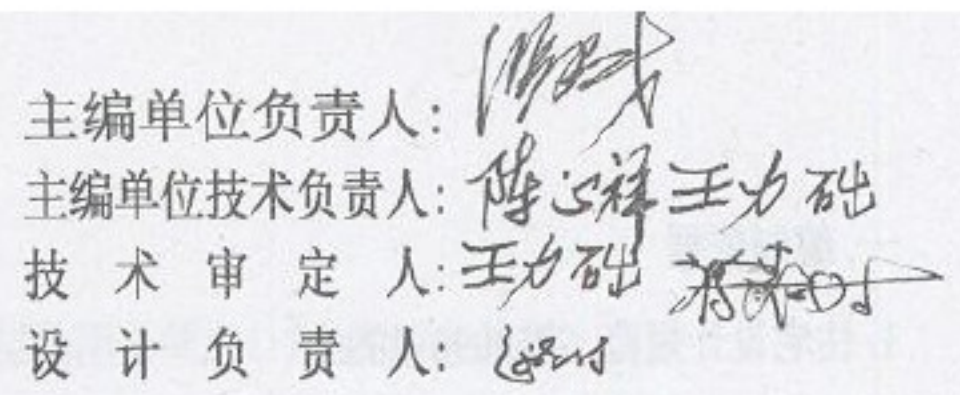 主编单位负责人:
主编单位技术负责人: 陈心祥 王力础
技术审定人: 王力础
设计负责人: